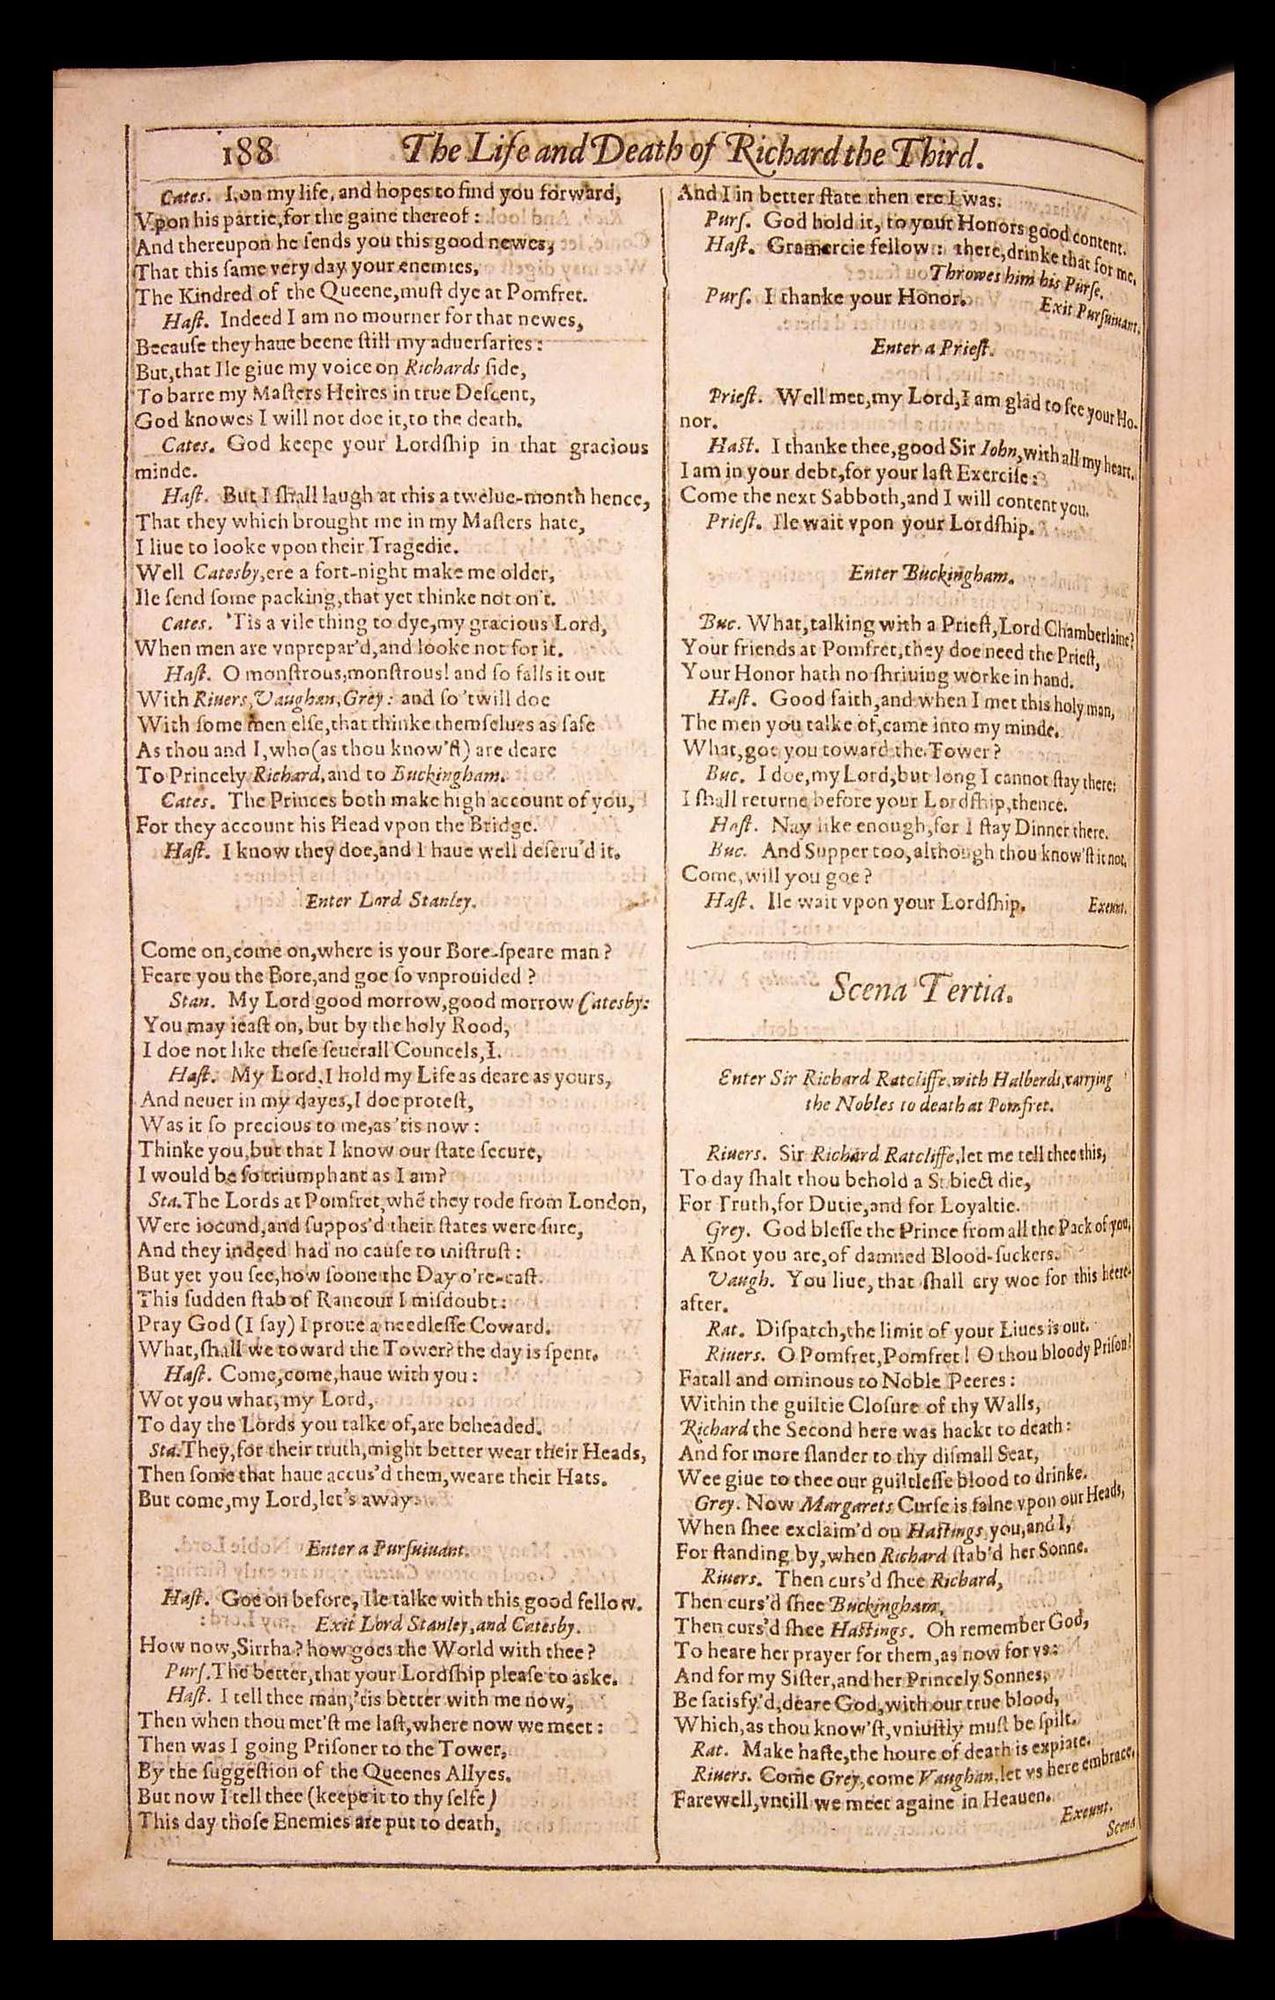 188
The Life and Death of Richard the Third.
Cates. I, on my life, and hopes to find you forward,
Vpon his partie, for the gaine thereof:
And thereupon he ſends you this good newes,
That this ſame very day your enemies,
The Kindred of the Queene, muſt dye at Pomfret.
Haſt. Indeed I am no mourner for that newes,
Becauſe they haue beene ſtill my aduerſaries:
But, that Ile giue my voice on Richards ſide,
To barre my Maſters Heires in true Deſcent,
God knowes I will not doe it, to the death.
Cates. God keepe your Lordſhip in that gracious
minde.
Haſt. But I ſhall laugh at this a twelue-month hence,
That they which brought me in my Maſters hate,
I liue to looke vpon their Tragedie.
Well Catesby, ere a fort-night make me older,
Ile ſend ſome packing, that yet thinke not on't.
Cates. 'Tis a vile thing to dye, my gracious Lord,
When men are vnprepar'd, and looke not for it.
Haſt. O monſtrous, monſtrous! and ſo falls it out
With Riuers, Vaughan, Grey: and ſo 'twill doe
With ſome men elſe, that thinke themſelues as ſafe
As thou and I, who (as thou know'ſt) are deare
To Princely Richard, and to Buckingham.
Cates. The Princes both make high account of you,
For they account his Head vpon the Bridge.
Haſt. I know they doe, and I haue well deſeru'd it.
Enter Lord Stanley.
Come on, come on, where is your Bore-ſpeare man?
Feare you the Bore, and goe ſo vnprouided?
Stan. My Lord good morrow, good morrow Catesby:
You may ieaſt on, but by the holy Rood,
I doe not like theſe ſeuerall Councels, I.
Haſt. My Lord, I hold my Life as deare as yours,
And neuer in my dayes, I doe proteſt,
Was it ſo precious to me, as 'tis now:
Thinke you, but that I know our ſtate ſecure,
I would be ſo triumphant as I am?
Sta. The Lords at Pomfret, whē they rode from London,
Were iocund, and ſuppos'd their ſtates were ſure,
And they indeed had no cauſe to miſtruſt:
But yet you ſee, how ſoone the Day o're-caſt.
This ſudden ſtab of Rancour I miſdoubt:
Pray God (I ſay) I proue a needleſſe Coward.
What, ſhall we toward the Tower? the day is ſpent.
Haſt. Come, come, haue with you:
Wot you what, my Lord,
To day the Lords you talke of, are beheaded.
Sta. They, for their truth, might better wear their Heads,
Then ſome that haue accus'd them, weare their Hats.
But come, my Lord, let's away.
Enter a Purſuiuant.
Haſt. Goe on before, Ile talke with this good fellow.
Exit Lord Stanley, and Catesby.
How now, Sirrha? how goes the World with thee?
Purſ. The better, that your Lordſhip pleaſe to aske.
Haſt. I tell thee man, 'tis better with me now,
Then when thou met'ſt me laſt, where now we meet:
Then was I going Priſoner to the Tower,
By the ſuggeſtion of the Queenes Allyes.
But now I tell thee (keepe it to thy ſelfe)
This day thoſe Enemies are put to death,
And I in better ſtate then ere I was.
Purſ. God hold it, to your Honors good content.
Haſt. Gramercie fellow: there, drinke that for me.
Throwes him his Purſe.
Purſ. I thanke your Honor. Exit Purſuiuant.
Enter a Prieſt.
Prieſt. Well met, my Lord, I am glad to ſee your Ho-
nor.
Haſt. I thanke thee, good Sir Iohn, with all my heart.
I am in your debt, for your laſt Exerciſe:
Come the next Sabboth, and I will content you.
Prieſt. Ile wait vpon your Lordſhip.
Enter Buckingham.
Buc. What, talking with a Prieſt, Lord Chamberlaine?
Your friends at Pomfret, they doe need the Prieſt,
Your Honor hath no ſhriuing worke in hand.
Haſt. Good faith, and when I met this holy man,
The men you talke of, came into my minde.
What, goe you toward the Tower?
Buc. I doe, my Lord, but long I cannot ſtay there:
I ſhall returne before your Lordſhip, thence.
Haſt. Nay like enough, for I ſtay Dinner there.
Buc. And Supper too, although thou know'ſt it not.
Come, will you goe?
Haſt. Ile wait vpon your Lordſhip. Exeunt.
Scena Tertia.
Enter Sir Richard Ratcliffe, with Halberds, carrying
the Nobles to death at Pomfret.
Riuers. Sir Richard Ratcliffe, let me tell thee this,
To day ſhalt thou behold a Subiect die,
For Truth, for Dutie, and for Loyaltie.
Grey. God bleſſe the Prince from all the Pack of you,
A Knot you are, of damned Blood-ſuckers.
Vaugh. You liue, that ſhall cry woe for this heere-
after.
Rat. Diſpatch, the limit of your Liues is out.
Riuers. O Pomfret, Pomfret! O thou bloody Priſon!
Fatall and ominous to Noble Peeres:
Within the guiltie Cloſure of thy Walls,
Richard the Second here was hackt to death:
And for more ſlander to thy diſmall Seat,
Wee giue to thee our guiltleſſe blood to drinke.
Grey. Now Margarets Curſe is falne vpon our Heads,
When ſhee exclaim'd on Haſtings, you, and I,
For ſtanding by, when Richard ſtab'd her Sonne.
Riuers. Then curs'd ſhee Richard,
Then curs'd ſhee Buckingham,
Then curs'd ſhee Haſtings. Oh remember God,
To heare her prayer for them, as now for vs:
And for my Siſter, and her Princely Sonnes,
Be ſatisfy'd, deare God, with our true blood,
Which, as thou know'ſt, vniuſtly muſt be ſpilt.
Rat. Make haſte, the houre of death is expiate.
Riuers. Come Grey, come Vaughan, let vs here embrace.
Farewell, vntill we meet againe in Heauen.
Exeunt.
Scena